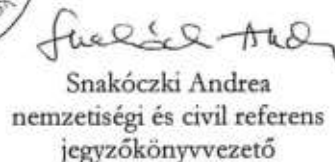 Snakóczki Andrea
nemzetiségi és civil referens
jegyzőkönyvvezető